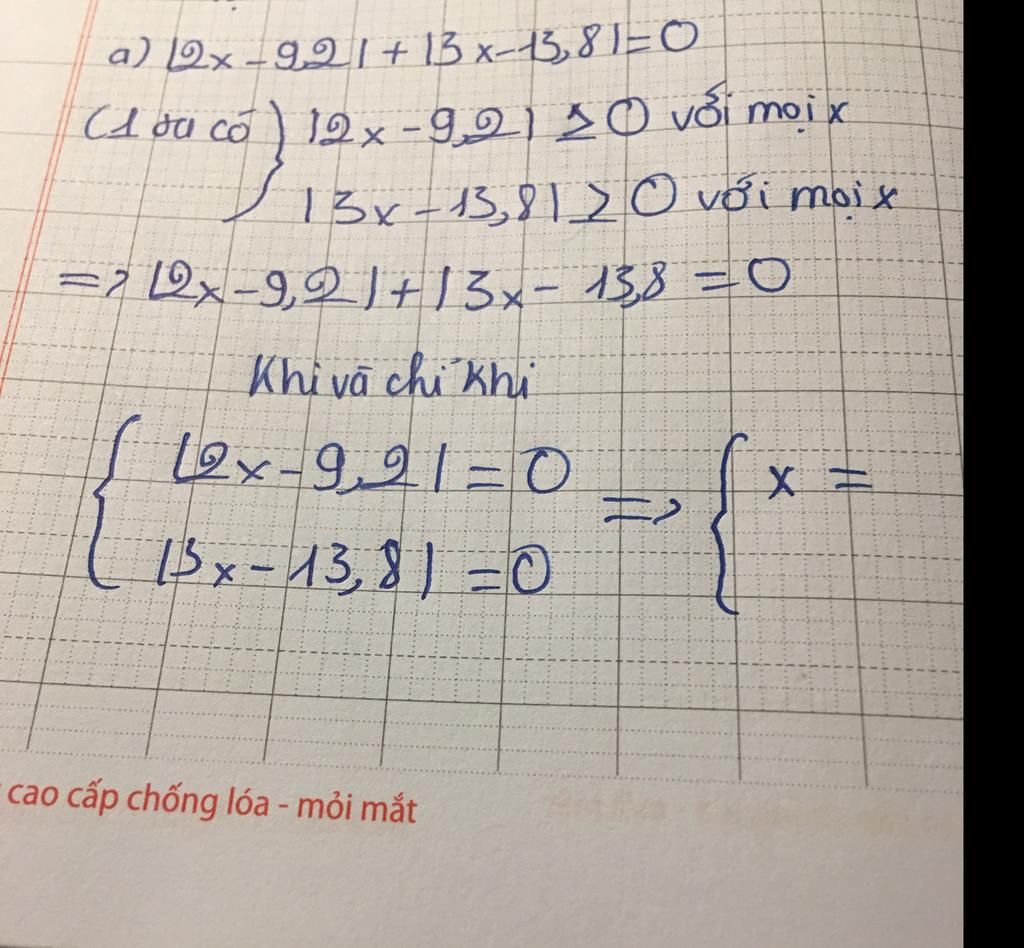 a) |2x - 9,2| + |3x - 13,8| = 0
(1 ta có } |2x - 9,2| ≥ 0 với mọi x
|3x - 13,8| ≥ 0 với mọi x
=> |2x - 9,2| + |3x - 13,8 = 0
Khi và chỉ khi
{ |2x - 9,2| = 0 => { x =
|3x - 13,8| = 0
cao cấp chống lóa - mỏi mắt